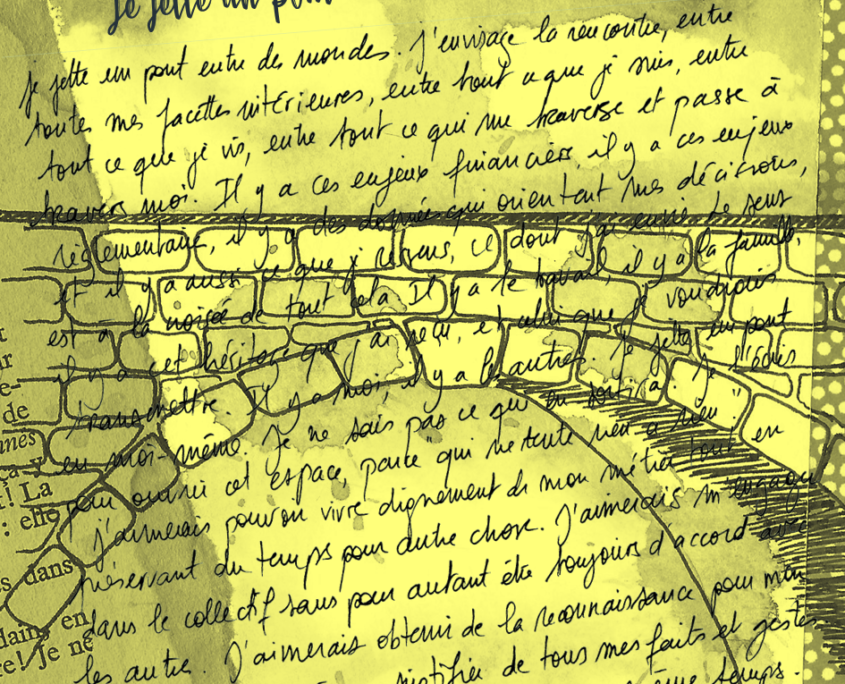 Je jette un pont
Je jette un pont entre des mondes. J'envisage la rencontre, entre
toutes mes facettes intérieures, entre tout ce que je suis, entre
tout ce que je vis, entre tout ce qui me traverse et passe à
travers moi. Il y a ces enjeux financiers, il y a ces enjeux
réglementaire, il y a des données qui orientent mes décisions,
et il y a aussi ce que je ressens, ce dont j'ai envie. Le sens
est à la croisée de tout cela. Il y a le travail, il y a la famille,
il y a cet héritage que j'ai reçu, et celui que je voudrais
transmettre. Il y a moi, il y a les autres. Je jette un pont
en moi-même. Je ne sais pas ce qui en sortira. Je l'écris
pour ouvrir cet espace, parce "qui ne tente rien a rien".
J'aimerais pouvoir vivre dignement de mon métier tout en
préservant du temps pour autre chose. J'aimerais m'engager
dans le collectif sans pour autant être toujours d'accord avec
les autres. J'aimerais obtenir de la reconnaissance pour mon
de tous mes faits et gestes
temps.
de
nnes
ça-y
! La
: elle
s dans
dains en
re! Je ne